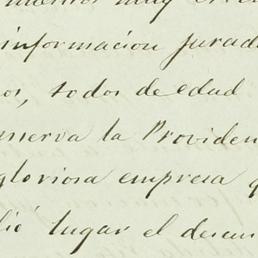 informacion jurad
os, todos de edad
nserva la Providen
gloriosa empresa q
lió lugar el descu